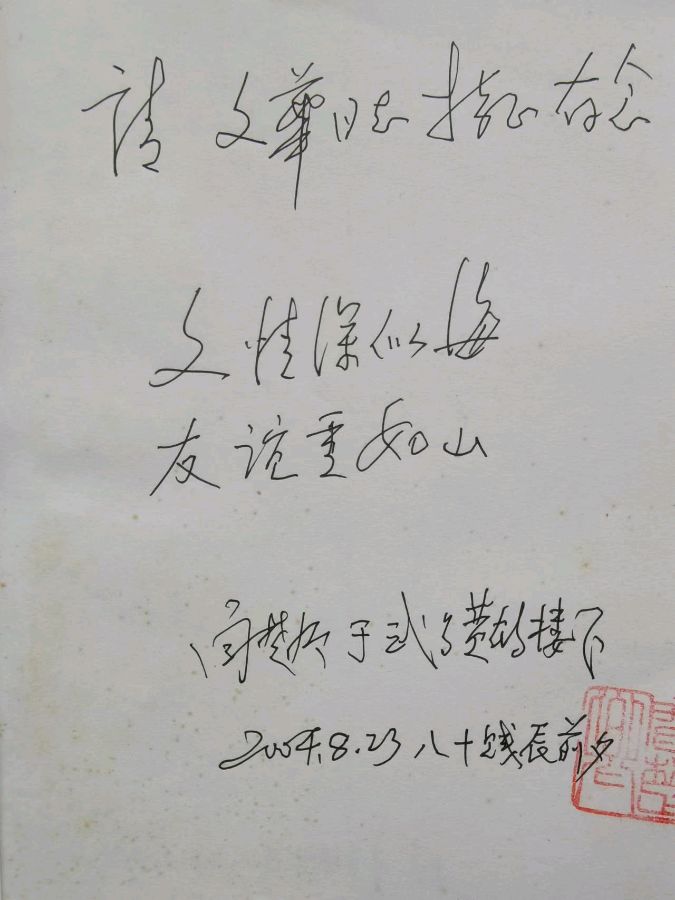 請文華同志指正存念
文情深似海
友谊重如山
于武昌黄鹤楼下
2004.8.23八十贱辰前夕